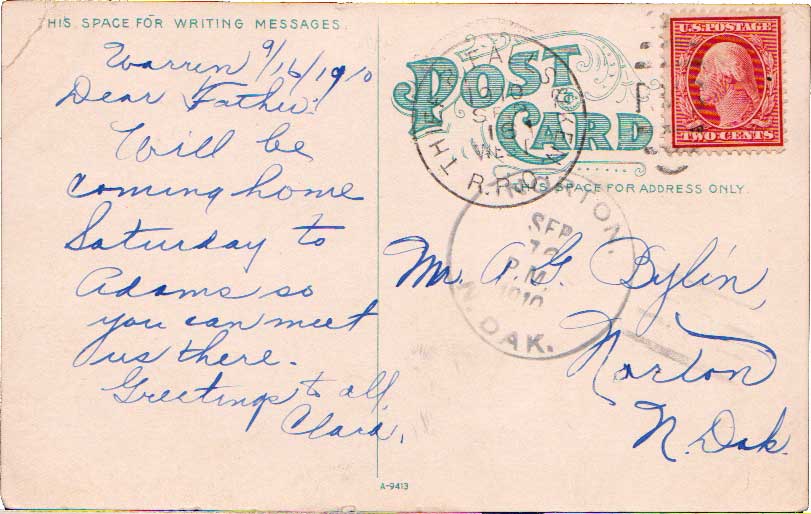 THIS SPACE FOR WRITING MESSAGES.
Warren 9/16/1910
Dear Father!
Will be
coming home
Saturday to
Adams so
you can meet
us there.
Greetings to all,
Clara.
POST CARD
U.S. POSTAGE
TWO CENTS
1910
SEP
16
R.P.O.
THIS SPACE FOR ADDRESS ONLY.
NORTON.
SEP
P.M.
1910
N. DAK.
Mr. A. G. Bylin,
Norton
N. Dak.
A-9413